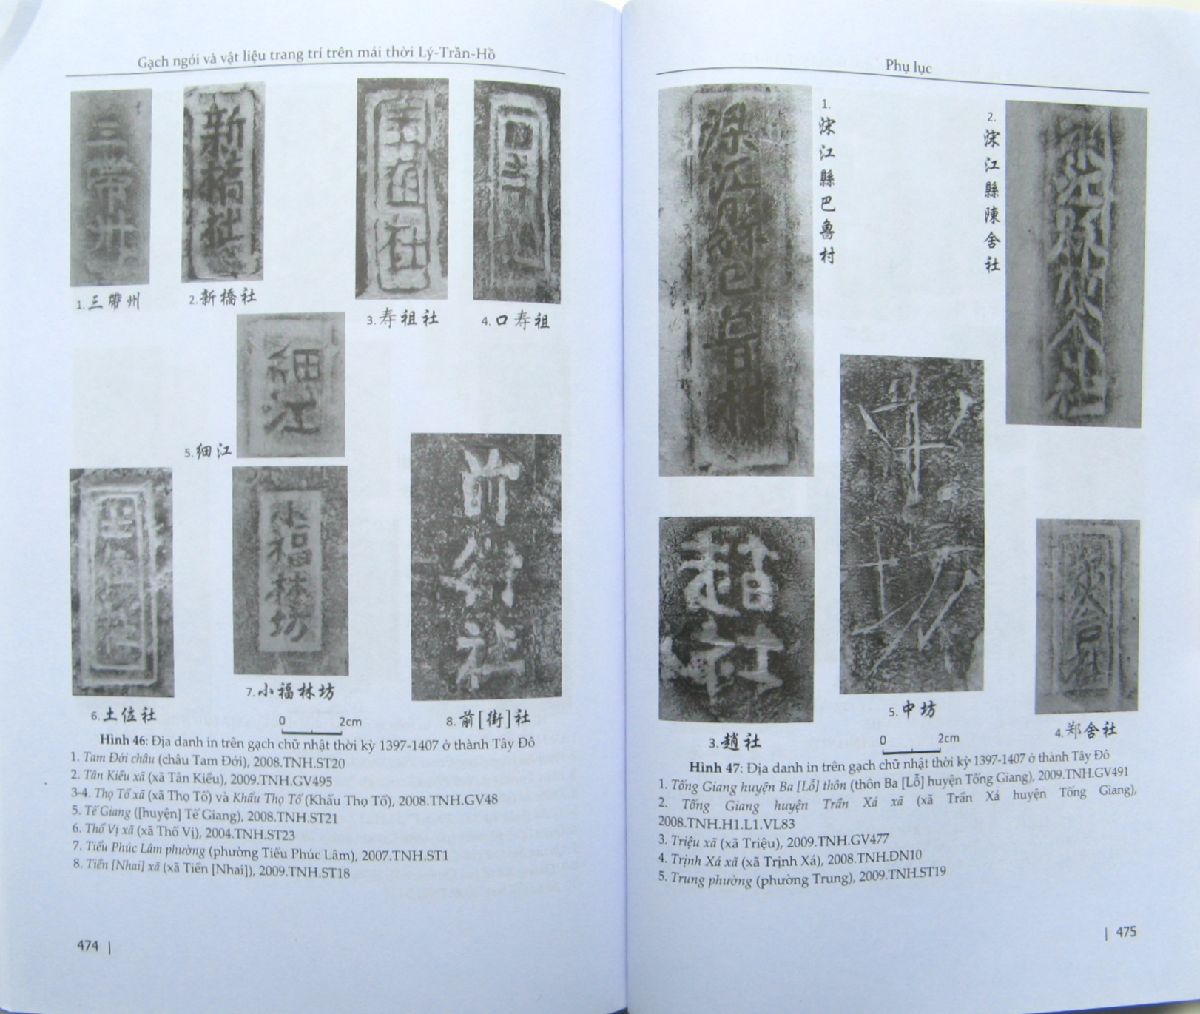 Gạch ngói và vật liệu trang trí trên mái thời Lý-Trần-Hồ
三帶州
新橋社
1.三帶州
2.新橋社
3.寿祖社
4.口寿祖
細江
5.细江
小福林坊
前街社
6.土位社
7.小福林坊
0 2cm
8.前[街]社
Hình 46: Địa danh in trên gạch chữ nhật thời kỳ 1397-1407 ở thành Tây Đô
1. Tam Đới châu (châu Tam Đới), 2008.TNH.ST20
2. Tân Kiều xã (xã Tân Kiều), 2009.TNH.GV495
3-4. Thọ Tổ xã (xã Thọ Tổ) và Khẩu Thọ Tổ (Khẩu Thọ Tổ), 2008.TNH.GV48
5. Tế Giang ([huyện] Tế Giang), 2008.TNH.ST21
6. Thổ Vị xã (xã Thổ Vị), 2004.TNH.ST23
7. Tiểu Phúc Lâm phường (phường Tiểu Phúc Lâm), 2007.TNH.ST1
8. Tiền [Nhai] xã (xã Tiền [Nhai]), 2009.TNH.ST18
474 |
Phụ lục
1.
江縣巴魯村
2.
江縣陳舍社
趙社
中坊
3.趙社
5.中坊
4.郑舍社
0 2cm
Hình 47: Địa danh in trên gạch chữ nhật thời kỳ 1397-1407 ở thành Tây Đô
1. Tống Giang huyện Ba [Lỗ] thôn (thôn Ba [Lỗ] huyện Tống Giang), 2009.TNH.GV491
2. Tống Giang huyện Trần Xá xã (xã Trần Xá huyện Tống Giang),
2008.TNH.H1.L1.VL83
3. Triệu xã (xã Triệu), 2009.TNH.GV477
4. Trịnh Xá xã (xã Trịnh Xá), 2008.TNH.DN10
5. Trung phường (phường Trung), 2009.TNH.ST19
| 475